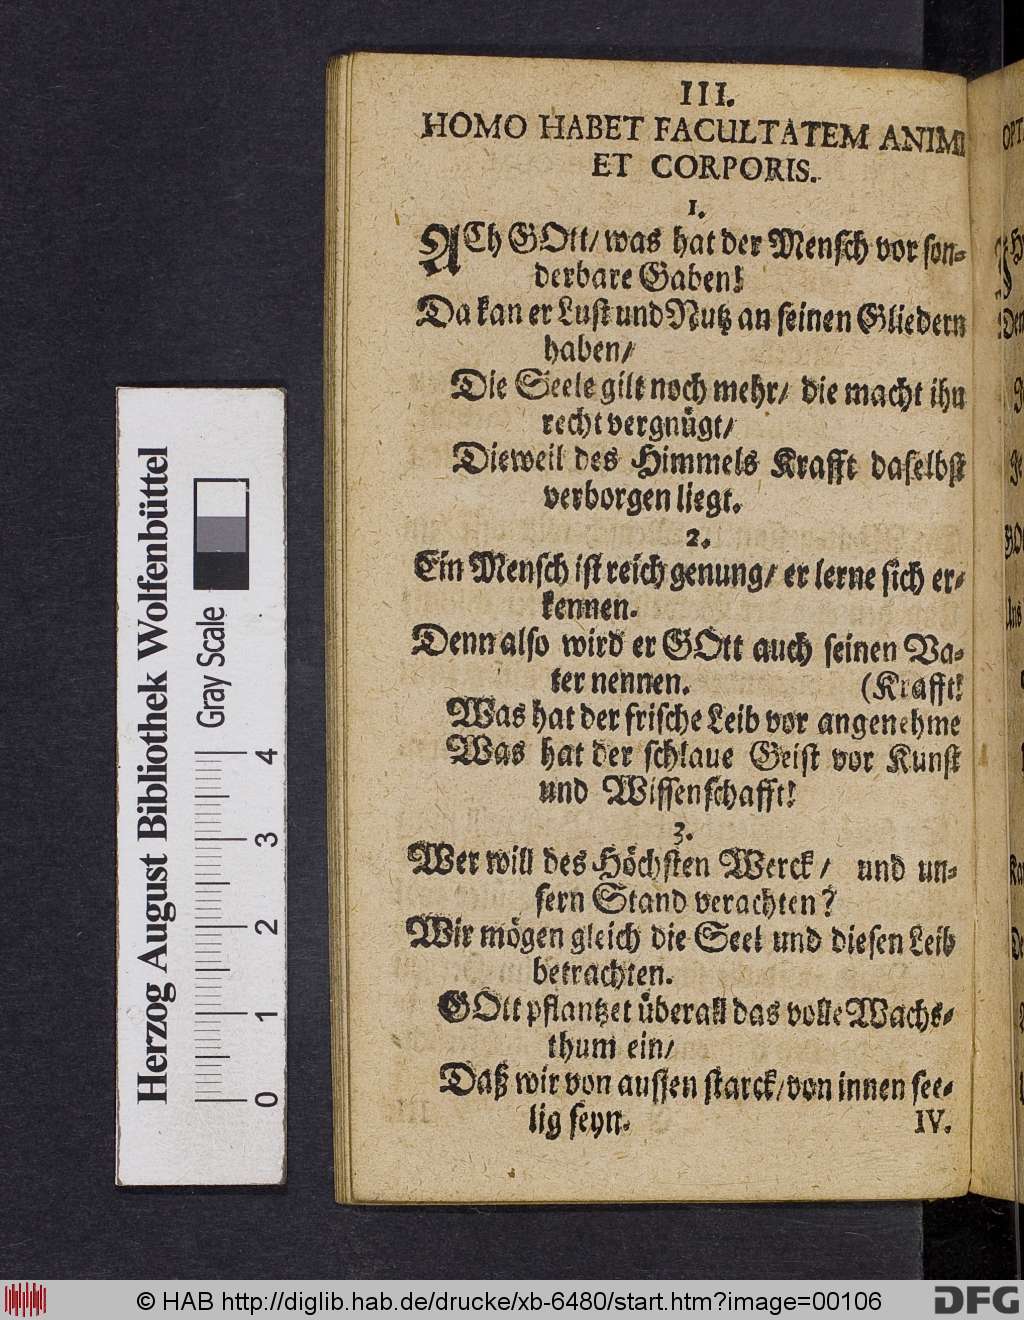 III.
HOMO HABET FACULTATEM ANIMI
ET CORPORIS.
1.
ACh GOtt/ was hat der Mensch vor son-
derbare Gaben!
Da kan er Lust und Nutz an seinen Gliedern
haben/
Die Seele gilt noch mehr/ die macht ihn
recht vergnügt/
Dieweil des Himmels Krafft daselbst
verborgen liegt.
2.
Ein Mensch ist reich genung/ er lerne sich er-
kennen.
Denn also wird er GOtt auch seinen Va-
ter nennen. (Krafft!
Was hat der frische Leib vor angenehme
Was hat der schlaue Geist vor Kunst
und Wissenschafft!
3.
Wer will des Höchsten Werck/ und un-
sern Stand verachten?
Wir mögen gleich die Seel und diesen Leib
betrachten.
GOtt pflantzet überall das volle Wachs-
thum ein/
Daß wir von aussen starck/ von innen see-
lig seyn. IV.
Herzog August Bibliothek Wolfenbüttel
Gray Scale
0 1 2 3 4
© HAB http://diglib.hab.de/drucke/xb-6480/start.htm?image=00106
DFG